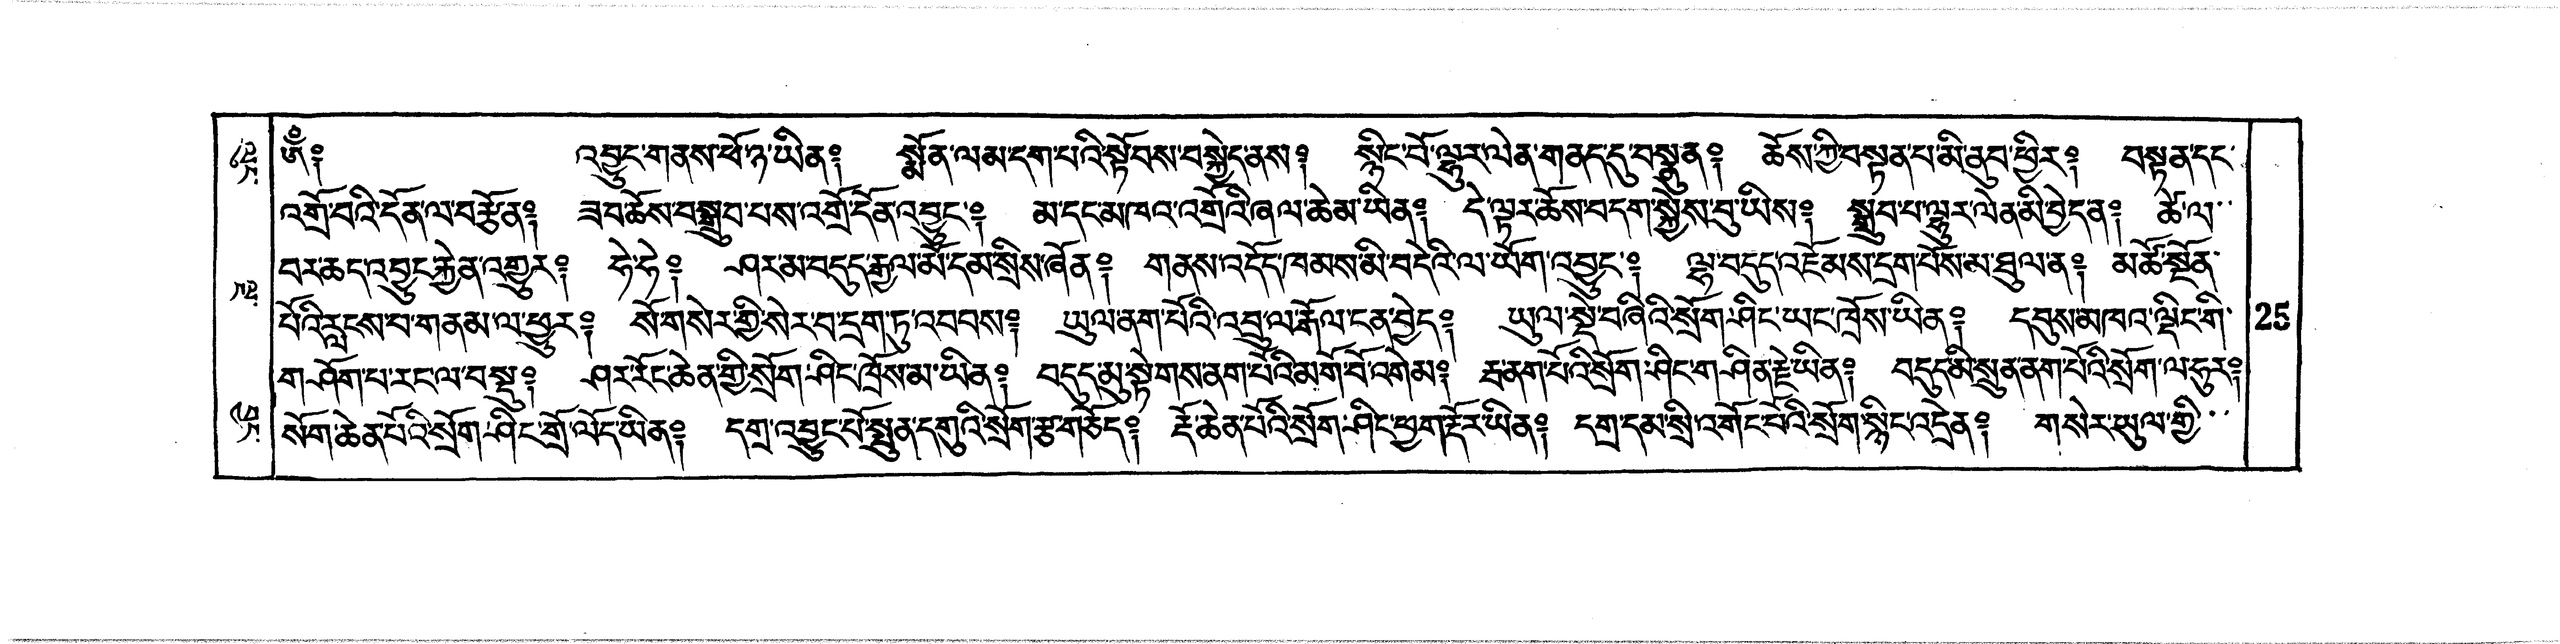 ཨོཾ༔ འབྱུང་གནས་ཕོ་ཉ་ཡིན༔ སྨོན་ལམ་དག་པའི་སྟོབས་བསྐྱེད་ནས༔ སྙིང་པོ་ལྷུར་ལེན་གནད་དུ་བསྣུན༔ ཆོས་ཀྱི་བསྟན་པ་མི་ནུབ་ཕྱིར༔ བསྟན་དང་
འགྲོ་བའི་དོན་ལ་བརྩོན༔ ཟབ་ཆོས་བསྒྲུབ་པས་འགྲོ་དོན་འབྱུང་༔ མ་དང་མཁའ་འགྲོའི་ཞལ་ཆེམ་ཡིན༔ དེ་ལྟར་ཆོས་བདག་སྐྱེས་བུ་ཡིས༔ སྒྲུབ་པ་ལྷུར་ལེན་མི་བྱེད་ན༔ ཚེ་ལ་
བར་ཆད་འབྱུང་རྐྱེན་འགྱུར༔ ཧེ་ཧེ༔ ཤར་མ་བདུད་རྒྱལ་མོ་དམ་སྲིས་ཞོན༔ གནས་འདོད་ཁམས་མི་བདེའི་ལ་ཡོག་འབྱུང་༔ ལྷ་བདུད་འཇོམས་དྲག་པོས་མ་ཐུལ་ན༔ མཚོ་སྔོན་
པོའི་རླངས་བ་གནམ་ལ་ཕྱུར༔ སོ་གསེར་གྱི་སེར་བ་དྲག་ཏུ་འབབས༔ ཡུལ་ནག་པོའི་འབྲུ་ལ་རྒོལ་ངན་བྱེད༔ ཡུལ་སྡེ་བཞིའི་སྲོག་ཤིང་ཡང་ཁྲོས་ཡིན༔ དབུས་མཁའ་ལྡིང་གི་
ག་ཤོག་པ་རང་ལ་བསྡུ༔ ཤར་རོང་ཆེན་གྱི་སྲོག་ཤིང་ཁྲོས་མ་ཡིན༔ བདུད་མུ་སྟེགས་ནག་པོའི་མགོ་བོ་འགེམ༔ རྦ་ནག་པོའི་སྲོག་ཤིང་གཤིན་རྗེ་ཡིན༔ བདུད་མི་སྲུན་ནག་པོའི་སྲོག་ལ་ཧུར༔
སོག་ཆེན་པོའི་སྲོག་ཤིང་གྲོ་ལོད་ཡིན༔ དགྲ་འབྱུང་པོ་སྤུན་དགུའི་སྲོག་རྩ་གཅོད༔ རྡོ་ཆེན་པོའི་སྲོག་ཤིང་ཕྱག་རྡོར་ཡིན༔ དགྲ་དམ་སྲི་འགོང་པོའི་སྲོག་སྙིང་འདྲེན༔ གསེར་ཡུལ་གྱི་
25